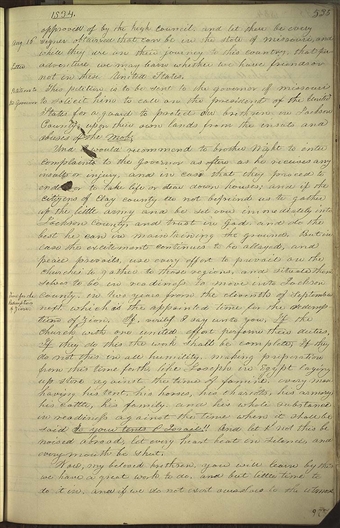 1834.
535
approved of by the high council and let there be every
Aug. 16th
signer obtained that can be in the state of Missouri, and
while they are on their journey to this country, that per-
Letter
adventure, we may learn whether we have friends or
not in these United States.
Petition to
This petition is to be sent to the governor of Missouri
the Governor
to solicit him to call on the president of the United
States for a guard to protect our brethren in Jackson
County, upon their own lands from the insults and
abuses of the Mob.
And I would recommend to brother Wight to enter
complaints to the governor as often as he receives any
insults or injury, and in case that they proceed to
endeavor to take life or tear down houses; and if the
citizens of Clay county do not befriend us to gather
up the little army and be set over immediately into
Jackson County, and trust in God, and do the
best he can in maintaining the ground. But in
case the excitement continues to be allayed, and
peace prevails, use every effort to prevail on the
churches to gather to those regions, and situate them-
selves to be in readiness to move into Jackson
Time for the
county in two years from the eleventh of September
redemption
next which is the appointed time for the redemp-
of Zion
tion of Zion. If, verily I say unto you, If the
Church, with one united effort perform their duties,
If they do this the work shall be complete; If they
do not this in all humility, making preparation
from this time forth, like Joseph in Egypt laying
up store against the time of famine, every man
having his tent, his horses, his chariots, his armory,
his cattle, his family, and his whole substance
in readiness against the time when it shall be
said To your tents O Israel!! And let not this be
noised abroad, let every heart beat in silence, and
every mouth be shut.
Now, my beloved brethren, you will learn by this
we have a great work to do, and but little time to
do it in, and if we do not exert ourselves to the utmost